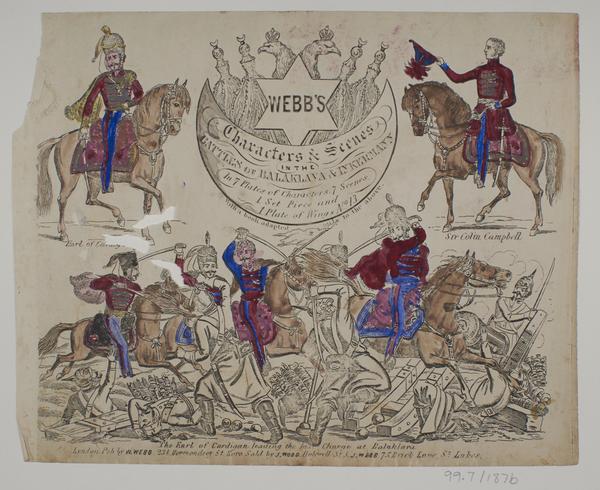 WEBB'S
Characters & Scenes
IN THE
BATTLES OF BALAKLAVA & INKERMANN
In 7 Plates of Characters, 7 Scenes
1 Set Piece and
1 Plate of Wings No 13
With a book adapted to the above.
Earl of
Sir Colin Campbell.
The Earl of Cardigan leading the Charge at Balaklava
London. Pub by W. WEBB St. Sold by J. WEBB Holywell St. & J. WEBB 75 Brick Lane, St Lukes.
99.7/187b